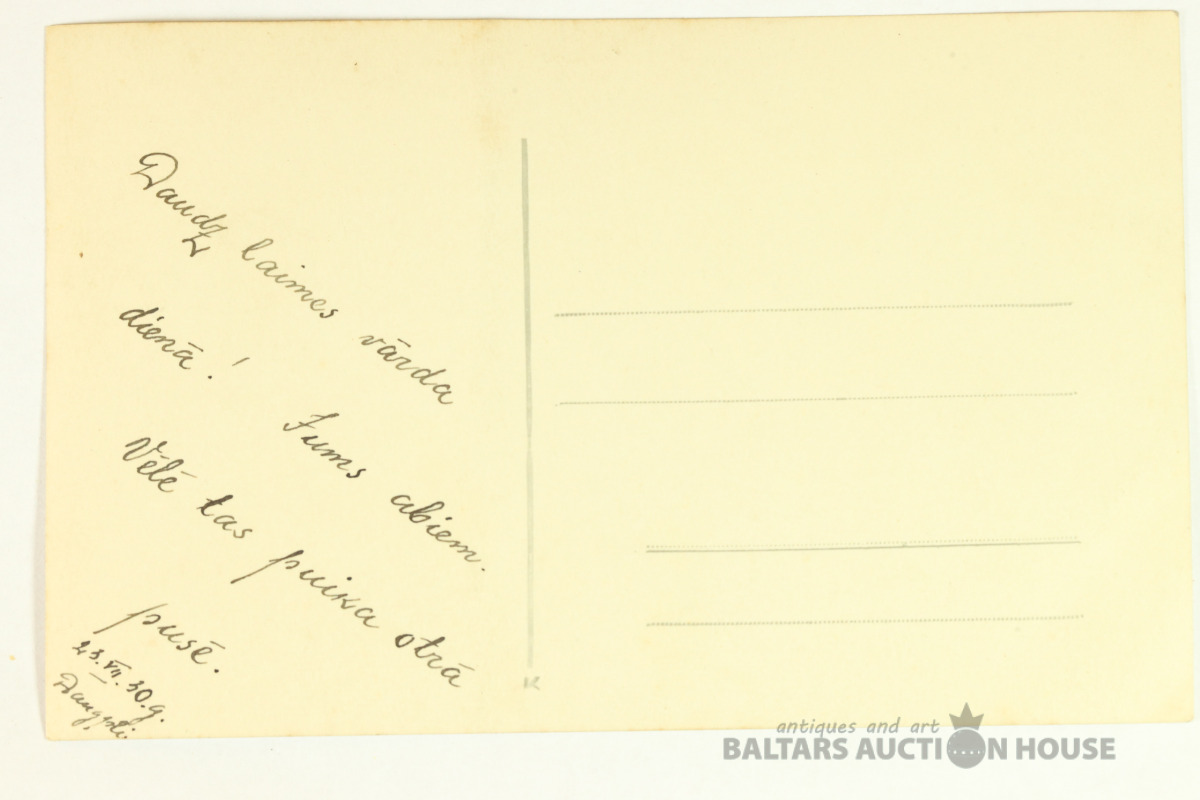 Daudz laimes vārda
dienā! Jums abiem.
Vēlē tas puika otrā
pusē.
23.VII.30.g.
K
antiques and art
BALTARS AUCTION HOUSE